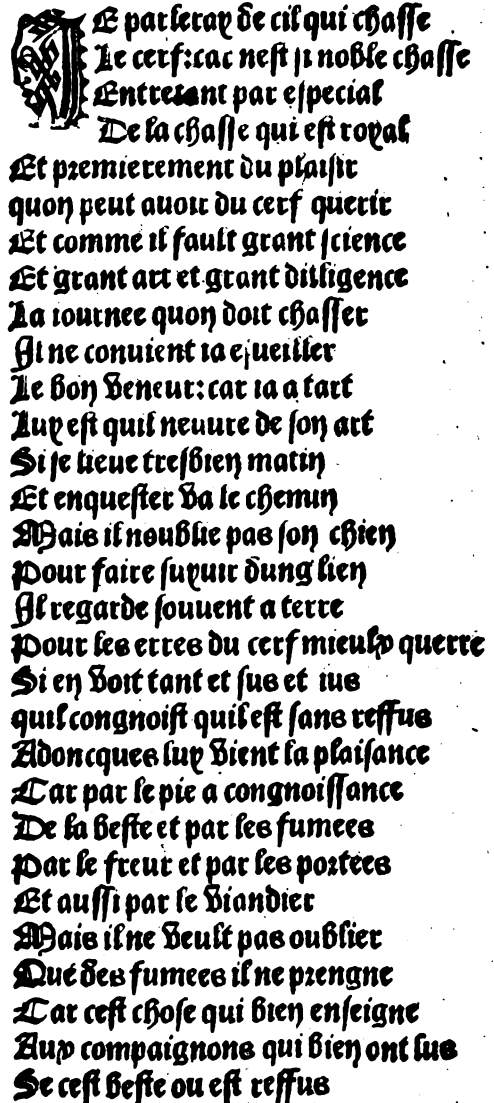 JE parleray de cil qui chasse
Le cerf:car nest si noble chasse
Entretant par especial
De la chasse qui est royal
Et premierement du plaisir
quon peut auoir du cerf querir
Et comme il fault grant science
Et grant art et grant dilligence
La iournee quon doit chasser
Il ne conuient ia esueiller
Le bon veneur:car ia a tart
Luy est quil neuure de son art
Si se lieue tresbien matin
Et enquester va le chemin
Mais il noublie pas son chien
Pour faire suyuir dung lien
Il regarde souuent a terre
Pour les erres du cerf mieulx querre
Si en voit tant et sus et ius
quil congnoist quil est sans reffus
Adoncques luy vient la plaisance
Car par le pie a congnoissance
De la beste et par les fumees
Par le freur et par les portees
Et aussi par le viandier
Mais il ne veult pas oublier
Que des fumees il ne prengne
Car cest chose qui bien enseigne
Aux compaignons qui bien ont sus
Se cest beste ou est reffus